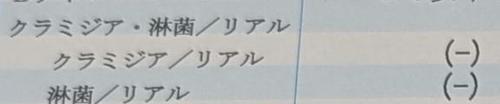 クラミジア・淋菌／リアル
クラミジア／リアル (−)
淋菌／リアル (−)